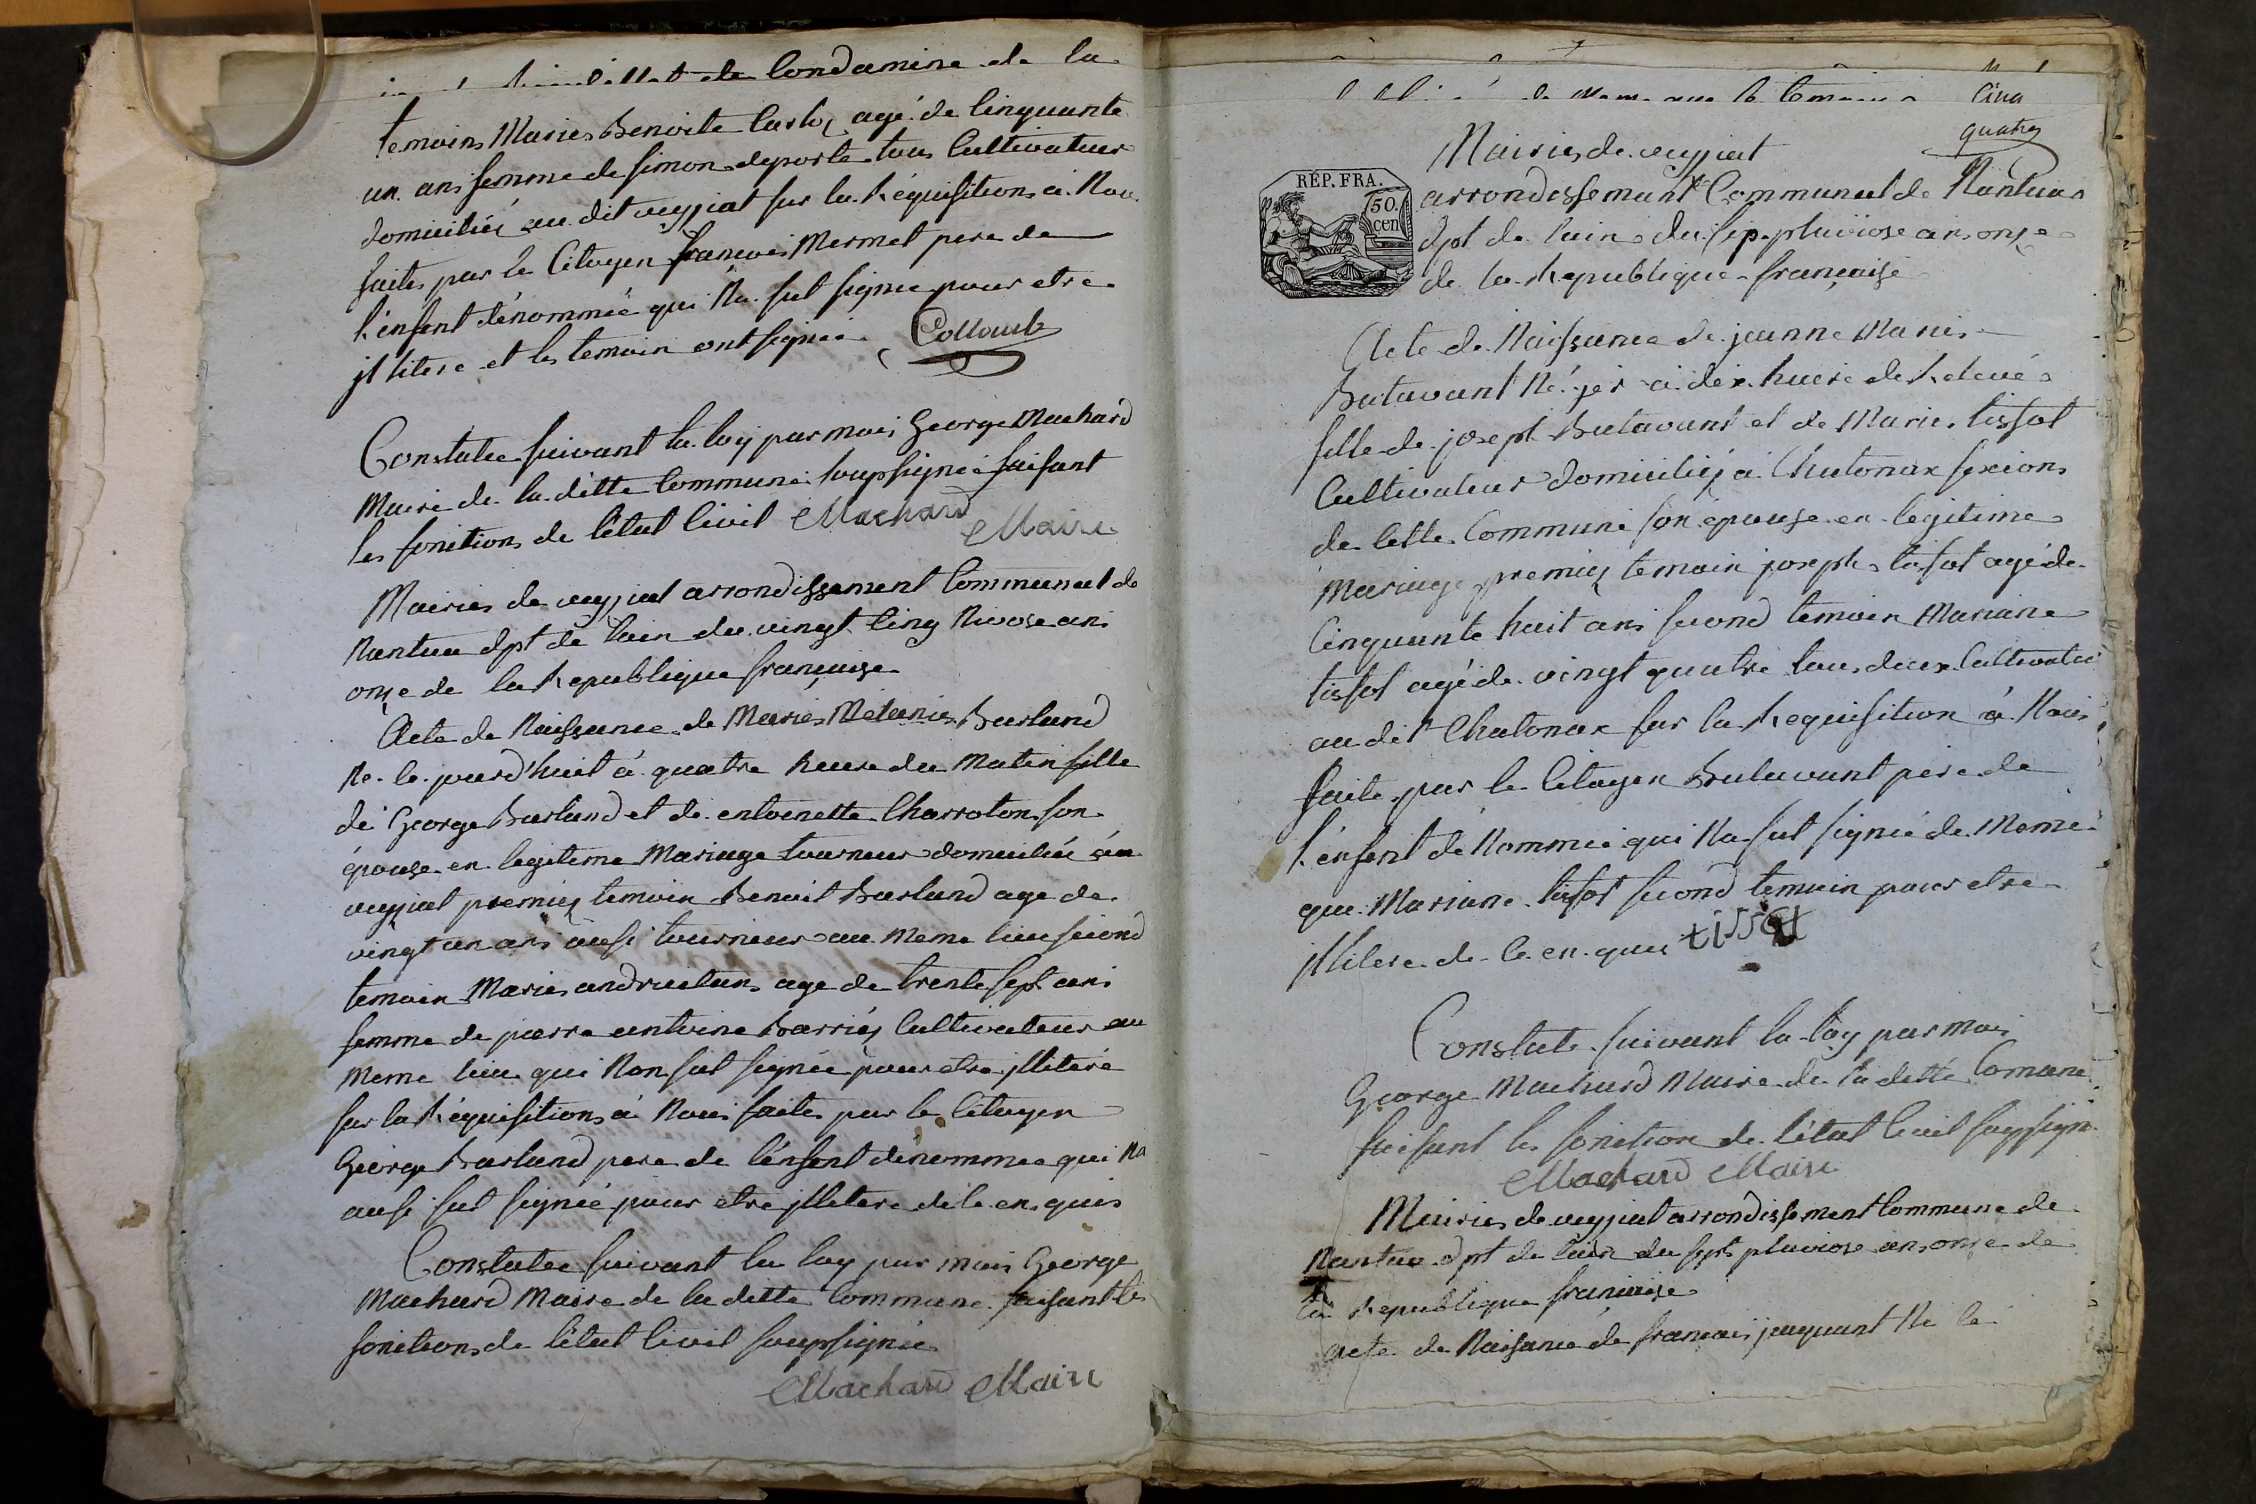 de Condamine de la
temoins Maries Benoite Carloz agé de Cinquante
un ans femme de Simon deporte tous Cultivateur
domiciliés au dit veyziat sur la Réquisitions à Nou
faites par le Citoyen francois Mermet pere de
l'enfent dénommée qui Na sut signee pour etre
jllitere et les temoin ont signée Collomb
Constatee suivant la loy par mois George Machard
Maire de la ditte Commune soupsignée faisant
les fonitions de l'état Civil Machard
Maire
Mairies de veyziat arrondissement Communal de
Nantua dpt de lain du vingt Cinq Nivose ans
onze de la Republique française
Acte de Naissance de Maries Melanies Burland
Ne. le jourd'huit à quatre heure du Matin fille
de George Burland et de entoinette Charroton son
épouse en legitime Mariage tourneur domiciliée au
veyziat premiez temoin Benoit Burland age de
vingt un ans ausi tourneur au meme lieu second
temoin Maries age de trente sept ans
femme de pierre antoine Barriez Cultivateur au
meme lieu qui Non sut signée pour etre jlliteré
sur la Réquisitions à Nous faites par le Citoyen
George Burland pere de l'enfent dénommee qui Na
ausi sut signée pour etre jllitere de le enquis
Constatee suivant la loy par mois George
Machard Maire de la ditte Commune faisant les
fonitions de l'état Civil soupsignée
Machard Maire
de meme que le temoin
Cinq
quatre
Mairies de veyziat
RÉP. FRA.
50.
cen
arrondissemant Communal de Nantua
dpt de lain du sep. pluviose ans onze
de la Republique française
Acte de Naissance de jeanne Maries
Butavant Né. jer à dix huere de Relevé
fille de joseph Butavant et de Maries tissot
Cultivateur domiciliez à Chatonax sexions
de Cette Commune son epouse en legitime
Mariage premiez temoin joseph tissot agé de
Cinquante huit ans second temoin Mariane
tissot agé de vingt quatre tous deux Cultivateu
au dit Chatonax sur la Requisition à Nous
faite par le Citoyen Butavant pere de
l'enfent dé Nommée qui Na sut signée de Meme
que Mariane tissot second temoin pour etre
jllitere de le en quis tissot
Constate suivant la loy par mois
George Machard Maire de la ditte Comune
faisant les fonition de l'état Civil soupsign
Machard Maire
Mairies de veyziat arrondissement Commune de
Nantua dpt de lain du sept pluviose ans onze de
la Republique française
Acte de Naisance de francois juquant Ne le